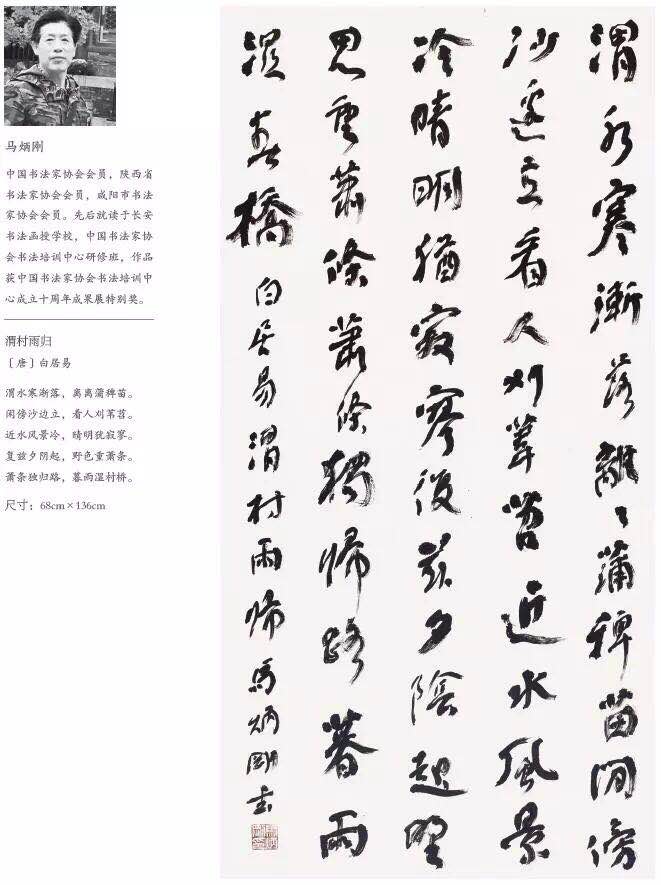 马炳刚
中国书法家协会会员，陕西省
书法家协会会员，咸阳市书法
家协会会员。先后就读于长安
书法函授学校，中国书法家协
会书法培训中心研修班，作品
获中国书法家协会书法培训中
心成立十周年成果展特别奖。
渭村雨归
［唐］白居易
渭水寒渐落，离离蒲稗苗。
闲傍沙边立，看人刈苇苕。
近水风景冷，晴明犹寂寥。
复兹夕阴起，野色重萧条。
萧条独归路，暮雨湿村桥。
尺寸：68cm×136cm
渭水寒漸落離〻蒲稗苗閒傍
沙邊立看人刈葦苕近水風景
冷晴明猶寂寥復茲夕陰起野
思重蕭條蕭條獨歸路暮雨
濕橋白居易渭村雨歸馬炳剛書